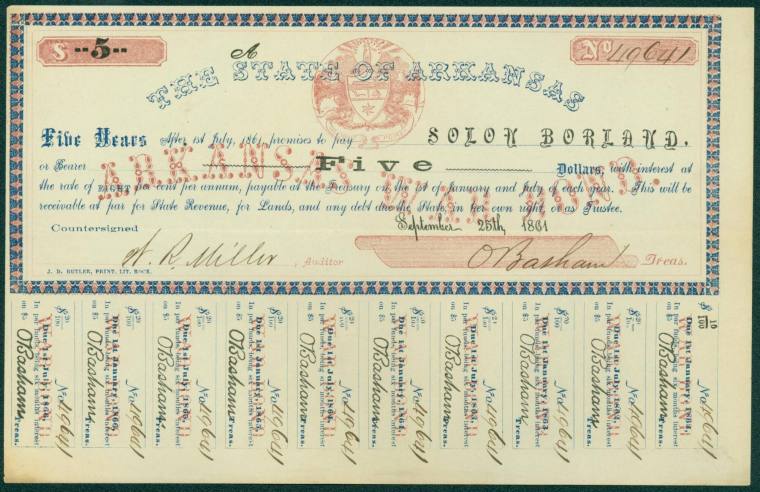 $ --5-- A No 49641
THE STATE OF ARKANSAS
Five Years After 1st July, 1861 promises to pay SOLON BORLAND.
or Bearer Five Dollars, with interest at
ARKANSAS WAR BOND.
the rate of EIGHT per cent per annum, payable at the Treasury on the 1st of January and July of each year. This will be
receivable at par for State Revenue, for Lands, and any debt due the State, in her own right, or as Trustee.
September 25th, 1861
Countersigned
W. R. Miller, Auditor O Basham Treas.
J. D. BUTLER, PRINT. LIT. ROCK.
$20/100 No 49641
Due 1st July, 1866,
In par funds being six months interest
on $5 O Basham Treas.
$20/100 No 49641
Due 1st January, 1866,
In par funds being six months interest
on $5 O Basham Treas.
$20/100 No 49641
Due 1st July, 1865,
In par funds being six months interest
on $5 O Basham Treas.
$20/100 No 49641
Due 1st January, 1865,
In par funds being six months interest
on $5 O Basham Treas.
$20/100 No 49641
Due 1st July, 1864,
In par funds being six months interest
on $5 O Basham Treas.
$20/100 No 49641
Due 1st January, 1864,
In par funds being six months interest
on $5 O Basham Treas.
No 49641
Due 1st July, 1863,
In par funds being six months interest
on $5 O Basham Treas.
$20/100 No 49641
Due 1st January, 1863,
In par funds being six months interest
on $5 O Basham Treas.
$20/100 No 49641
Due 1st July, 1862,
In par funds being six months interest
on $5 O Basham Treas.
$10/100 No 49641
Due 1st January, 1862,
In par funds being months interest
on $5 O Basham Treas.